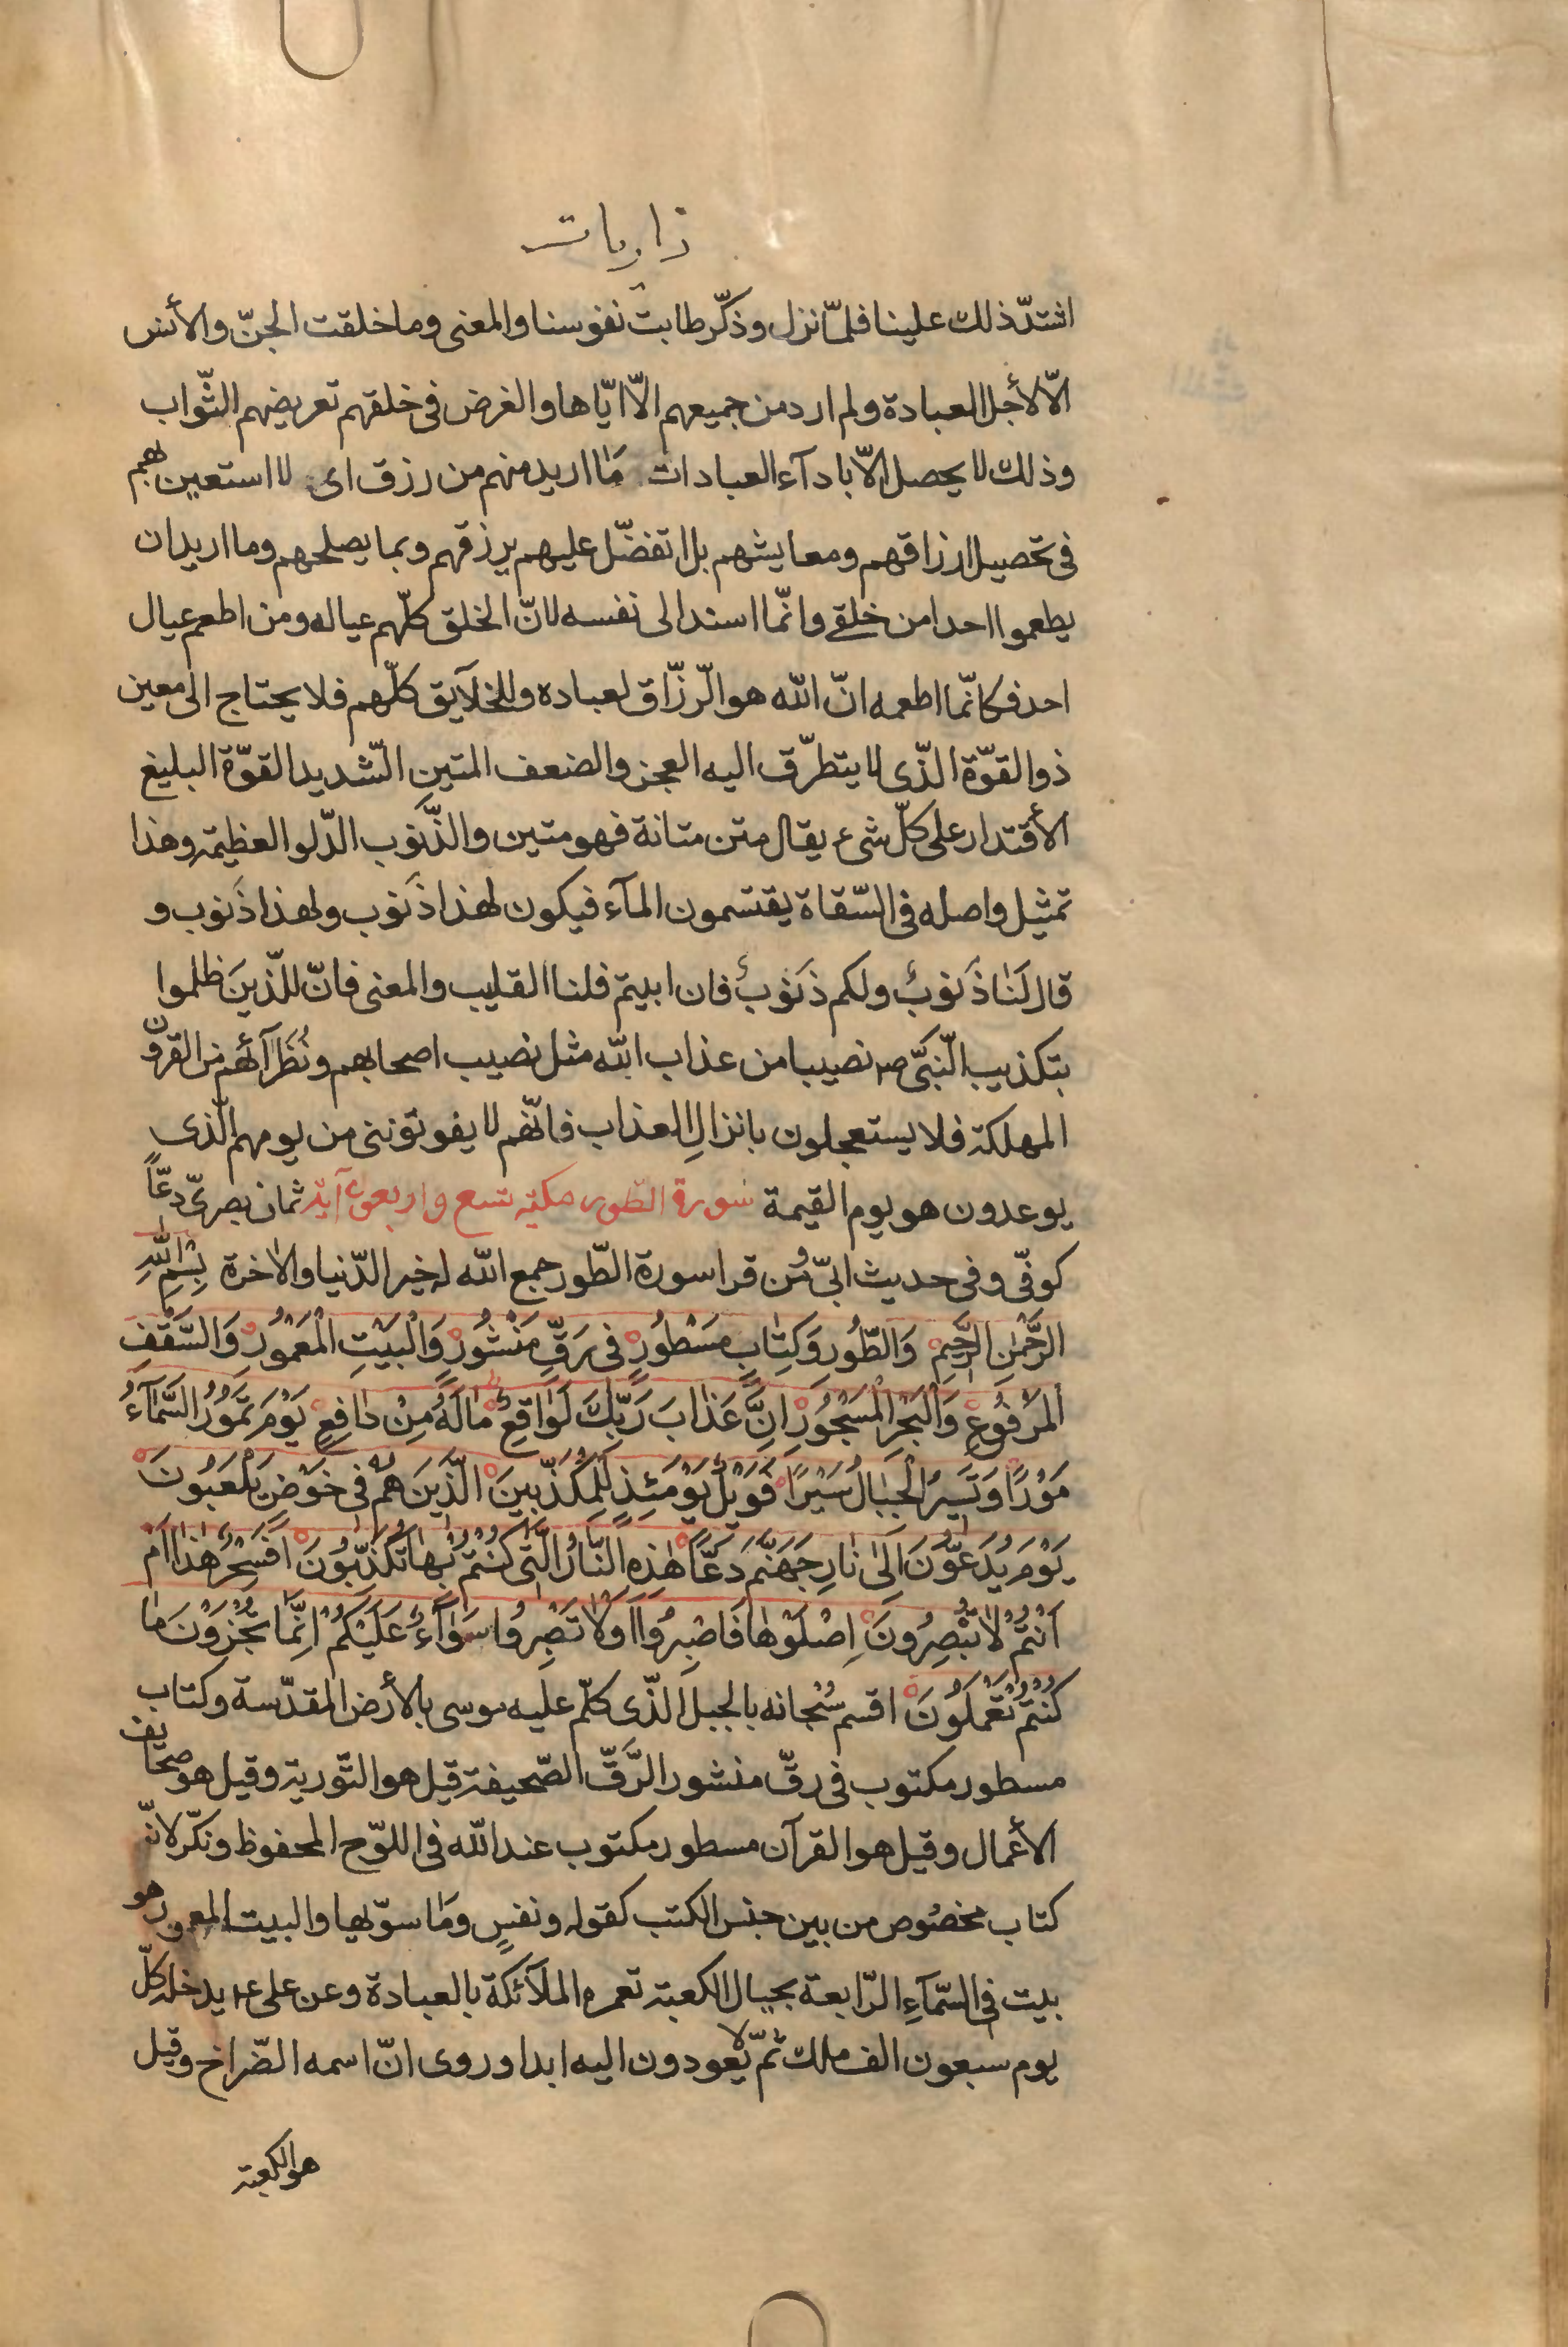 ذاريات
اشتدّ ذلك علينا فلمّا نزل وذكّر طابت نفوسنا والمعنى وما خلقت الجنّ والأنس
الّا لأجل العبادة ولم ارد من جميعهم الّا ايّاها والغرض فى خلقهم تعريضهم الثّواب
وذلك لا يحصل الّا بادآء العبادات مَا اريد منهم من رزق اى لا استعين بهم
فى تحصيل ارزاقهم ومعايشهم بل اتفضّل عليهم برزقهم وبما يصلحهم وما اريد ان
يطعموا احدا من خلقى وانّما اسند الى نفسه لانّ الخلق كلّهم عياله ومن اطعم عيال
احد فكانّما اطعمه انّ الله هو الرّزّاق لعباده وللخلآيق كلّهم فلا يحتاج الى معين
ذو القوّة الّذى لا يتطرّق اليه العجز والضعف المتين الشّديد القوّة البليغ
الأقتدار على كلّ شىء يقال متن متانة فهو متين والذَّنوب الدّلو العظيمة وهذا
تمثيل واصله فى السّقاة يقتسمون المآء فيكون لهذا ذَنوب ولهذا ذَنوب و
قال لَنَا ذَنوبٌ ولكم ذَنوبٌ فان ابيتم فلنا القليب والمعنى فانّ للّذينَ ظلموا
بتكذيب النّبىّ ص نصيبا من عذاب الله مثل نصيب اصحابهم ونُظَرآئهم من القرون
المهلكة فلا يستعجلون بانزالِ العذاب فانّهم لا يفوتوننى من يومهم الّذى
يوعدون هو يوم القيمة سورة الطّور مكيّة تسع واربعون آية ثمان بصرىّ دعّاً
كوفّى وفى حديث ابىّ ومن قرا سورة الطّور جمع الله له خير الدّنيا والاخرة بِسْمِ اللهِ
الرَّحْمٰنِ الرَّحِيمِ وَالطُّورِ وَكِتٰابٍ مَسْطُورٍ فى رَقٍّ مَنْشُورٍ وَالْبَيْتِ الْمَعْمُورِ وَالسَّقْفِ
الْمَرْفُوعِ وَالْبَحْرِ الْمَسْجُورِ اِنَّ عَذٰابَ رَبِّكَ لَوٰاقِعٌ مٰا لَهُ مِنْ دٰافِعٍ يَوْمَ تَمُورُ السَّمٰآءُ
مَوْرًا وَتَسِيرُ الْجِبٰالُ سَيْرًا فَوَيْلٌ يَوْمَئِذٍ لِلْمُكَذِّبِينَ الَّذِينَ هُمْ فى خَوْضٍ يَلْعَبُونَ
يَوْمَ يُدَعُّونَ اِلَىٰ نٰارِ جَهَنَّمَ دَعًّا هٰذِهِ النّٰارُ الَّتى كُنْتُمْ بِهٰا تُكَذِّبُونَ اَفَسِحْرٌ هٰذٰا اَمْ
اَنْتُمْ لٰا تُبْصِرُونَ اِصْلَوْهٰا فَاصْبِرُوا اَوْ لٰا تَصْبِرُوا سَوٰآءٌ عَلَيْكُمْ اِنَّمٰا تُجْزَوْنَ مٰا
كُنْتُمْ تَعْمَلُونَ اقسم سُبْحانه بالجبل الّذى كلّم عليه موسى بالأرض المقدّسة وكتاب
مسطور مكتوب فى رقّ منشور الرَّقّ الصّحيفة قيل هو التّورية وقيل هو صحايف
الأعمال وقيل هو القرآن مسطور مكتوب عند الله فى اللوّح المحفوظ ونكّر لانّه
كتاب مخصُوص من بين جنس الكتب كقوله ونفسٍ ومَا سوّيها والبيت المعمور هو
بيت فى السّمآءِ الرّابعة بحيال الكعبة تعمره الملآئكة بالعبادة وعن على ع يدخله كلّ
يوم سبعون الف ملك ثمّ لا يعودون اليه ابدا وروى انّ اسمه الضّراح وقيل
هو الكعبة